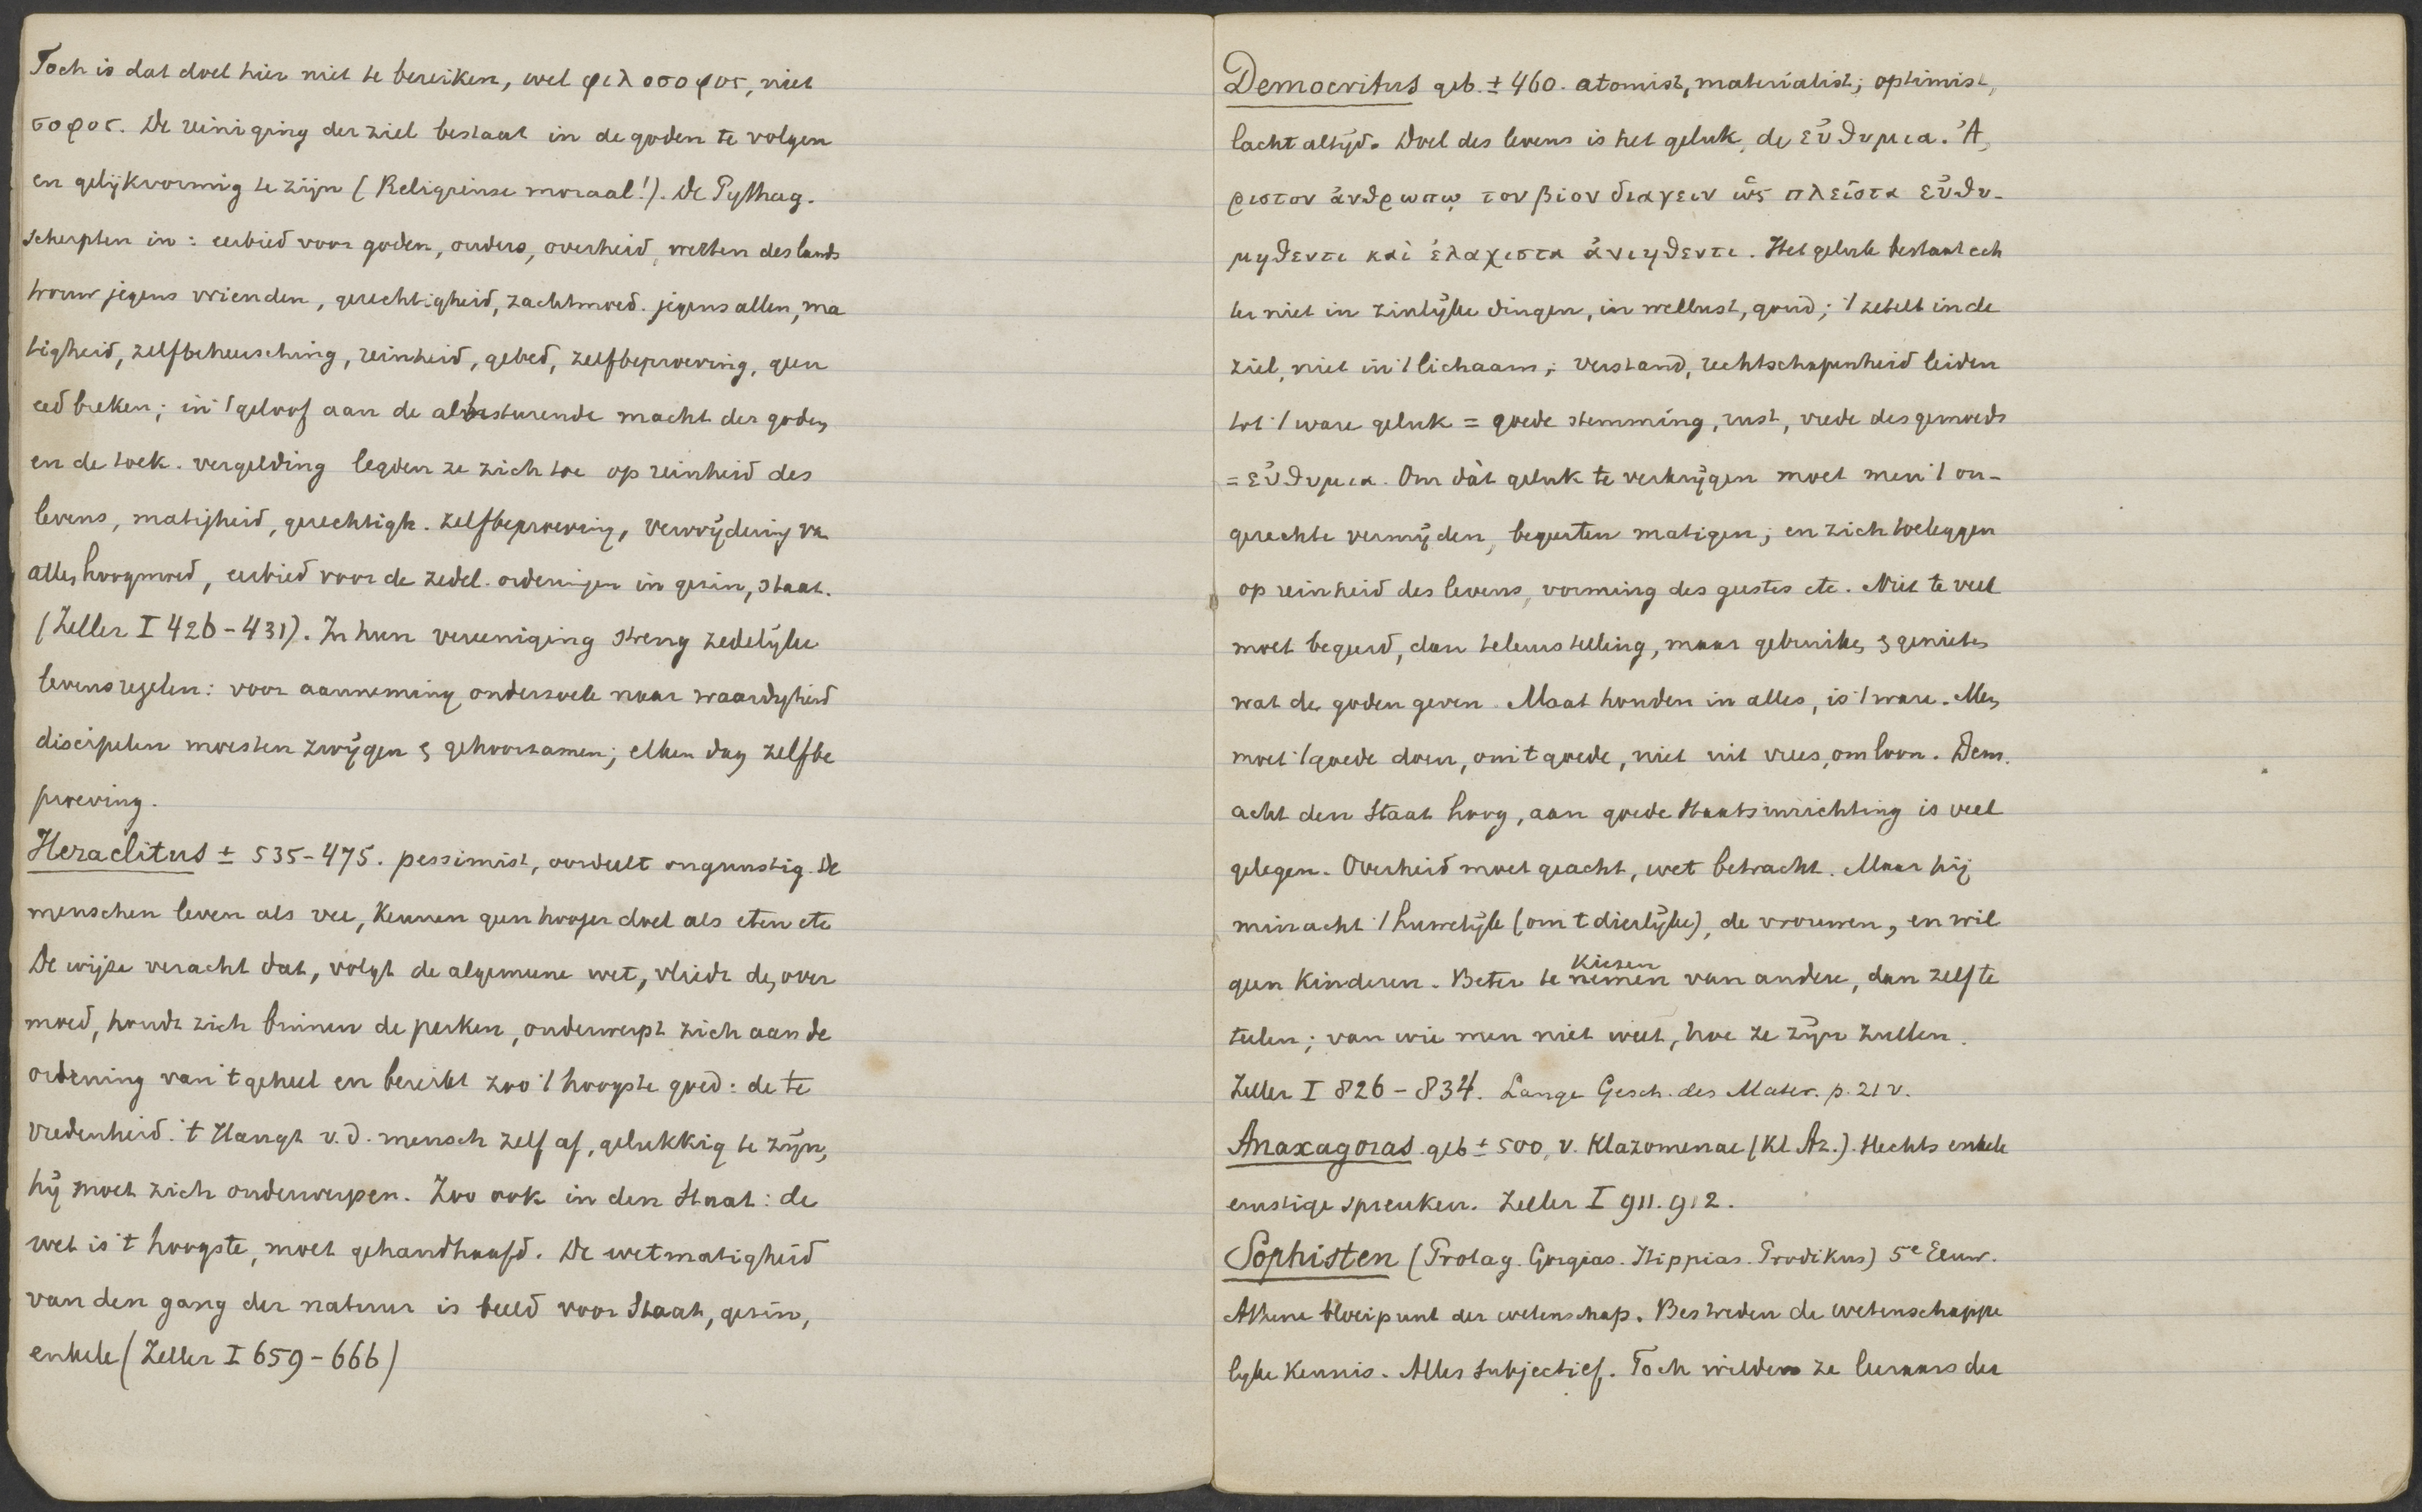 Toch is dat doel hier niet te bereiken, wel φιλοσοφος, niet
σοφος. De reiniging der ziel bestaat in de goden te volgen
en gelijkvormig te zijn (Religieuse moraal!). De Pythag.
scherpten in: eerbied voor goden, ouders, overheid, wetten des lands
trouw jegens vrienden, gerechtigheid, zachtmoed. jegens allen, ma
tigheid, zelfbeheersching, reinheid, gebed, zelfbeproeving, geen
eed breken; in 't geloof aan de albesturende macht der goden
en de toek. vergelding legden ze zich toe op reinheid des
levens, matigheid, gerechtigh. zelfbeproeving, vermijding van
allen hoogmoed, eerbied voor de zedel. ordeningen in gezin, staat.
(Zeller I 426-431). In hun vereeniging streng zedelijke
levensregelen: voor aanneming onderzoek naar waardigheid
discipelen moesten zwijgen & gehoorzamen; elken dag zelfbe
proeving.
Heraclitus ± 535-475. pessimist, oordeelt ongunstig. De
menschen leven als vee, kennen geen hooger doel als eten etc
De wijze veracht dat, volgt de algemeene wet, vliedt den over
moed, houdt zich binnen de perken, onderwerpt zich aan de
ordening van 't geheel en bereikt zoo 't hoogste goed: de te
vredenheid. 't Hangt v.d. mensch zelf af, gelukkig te zijn,
hij moet zich onderwerpen. Zoo ook in den Staat: de
wet is 't hoogste, moet gehandhaafd. De wetmatigheid
van den gang der natuur is beeld voor Staat, gezin,
enkele (Zeller I 659-666)
Democritus geb. ± 460. atomist, materialist; optimist,
lacht altijd. Doel des levens is het geluk, de εὐθυμια. Ἀ,
ριστον ἀνθρωπῳ τον βιον διαγειν ὡς πλεῖστα εὐθυ-
μηθεντι καὶ ἐλαχιστα ἀνιηθεντι. Het geluk bestaat ech
ter niet in zinlijke dingen, in wellust, goud; 't zetelt in de
ziel, niet in 't lichaam; verstand, rechtschapenheid leiden
tot 't ware geluk = goede stemming, rust, vrede des gemoeds
= εὐθυμια. Om dàt geluk te verkrijgen moet men 't on-
gerechte vermijden, begeerten matigen; en zich toeleggen
op reinheid des levens, vorming des geestes etc. Niet te veel
moet begeerd, dan teleurstelling, maar gebruiken & genieten
wat de goden geven. Maat houden in alles, is 't ware. Men
moet 't goede doen, om 't goede, niet uit vrees, om loon. Dem.
acht den Staat hoog, aan goede Staatsinrichting is veel
gelegen. Overheid moet geacht, wet betracht. Maar hij
minacht 't huwelijk (om 't dierlijke), de vrouwen, en wil
geen kinderen. Beter te nemen kiezen van andere, dan zelf te
telen; van wie men niet weet, hoe ze zijn zullen.
Zeller I 826-834. Lange Gesch. des Mater. p. 21 v.
Anaxagoras geb ± 500, v. Klazomenae (Kl Az.). Slechts enkele
ernstige spreuken. Zeller I 911. 912.
Sophisten (Protag. Gorgias. Hippias. Prodikus) 5e Eeuw.
Athene bloeipunt der wetenschap. Bestreden de wetenschappe
lijke kennis. Alles subjectief. Toch wilden ze leeraars der